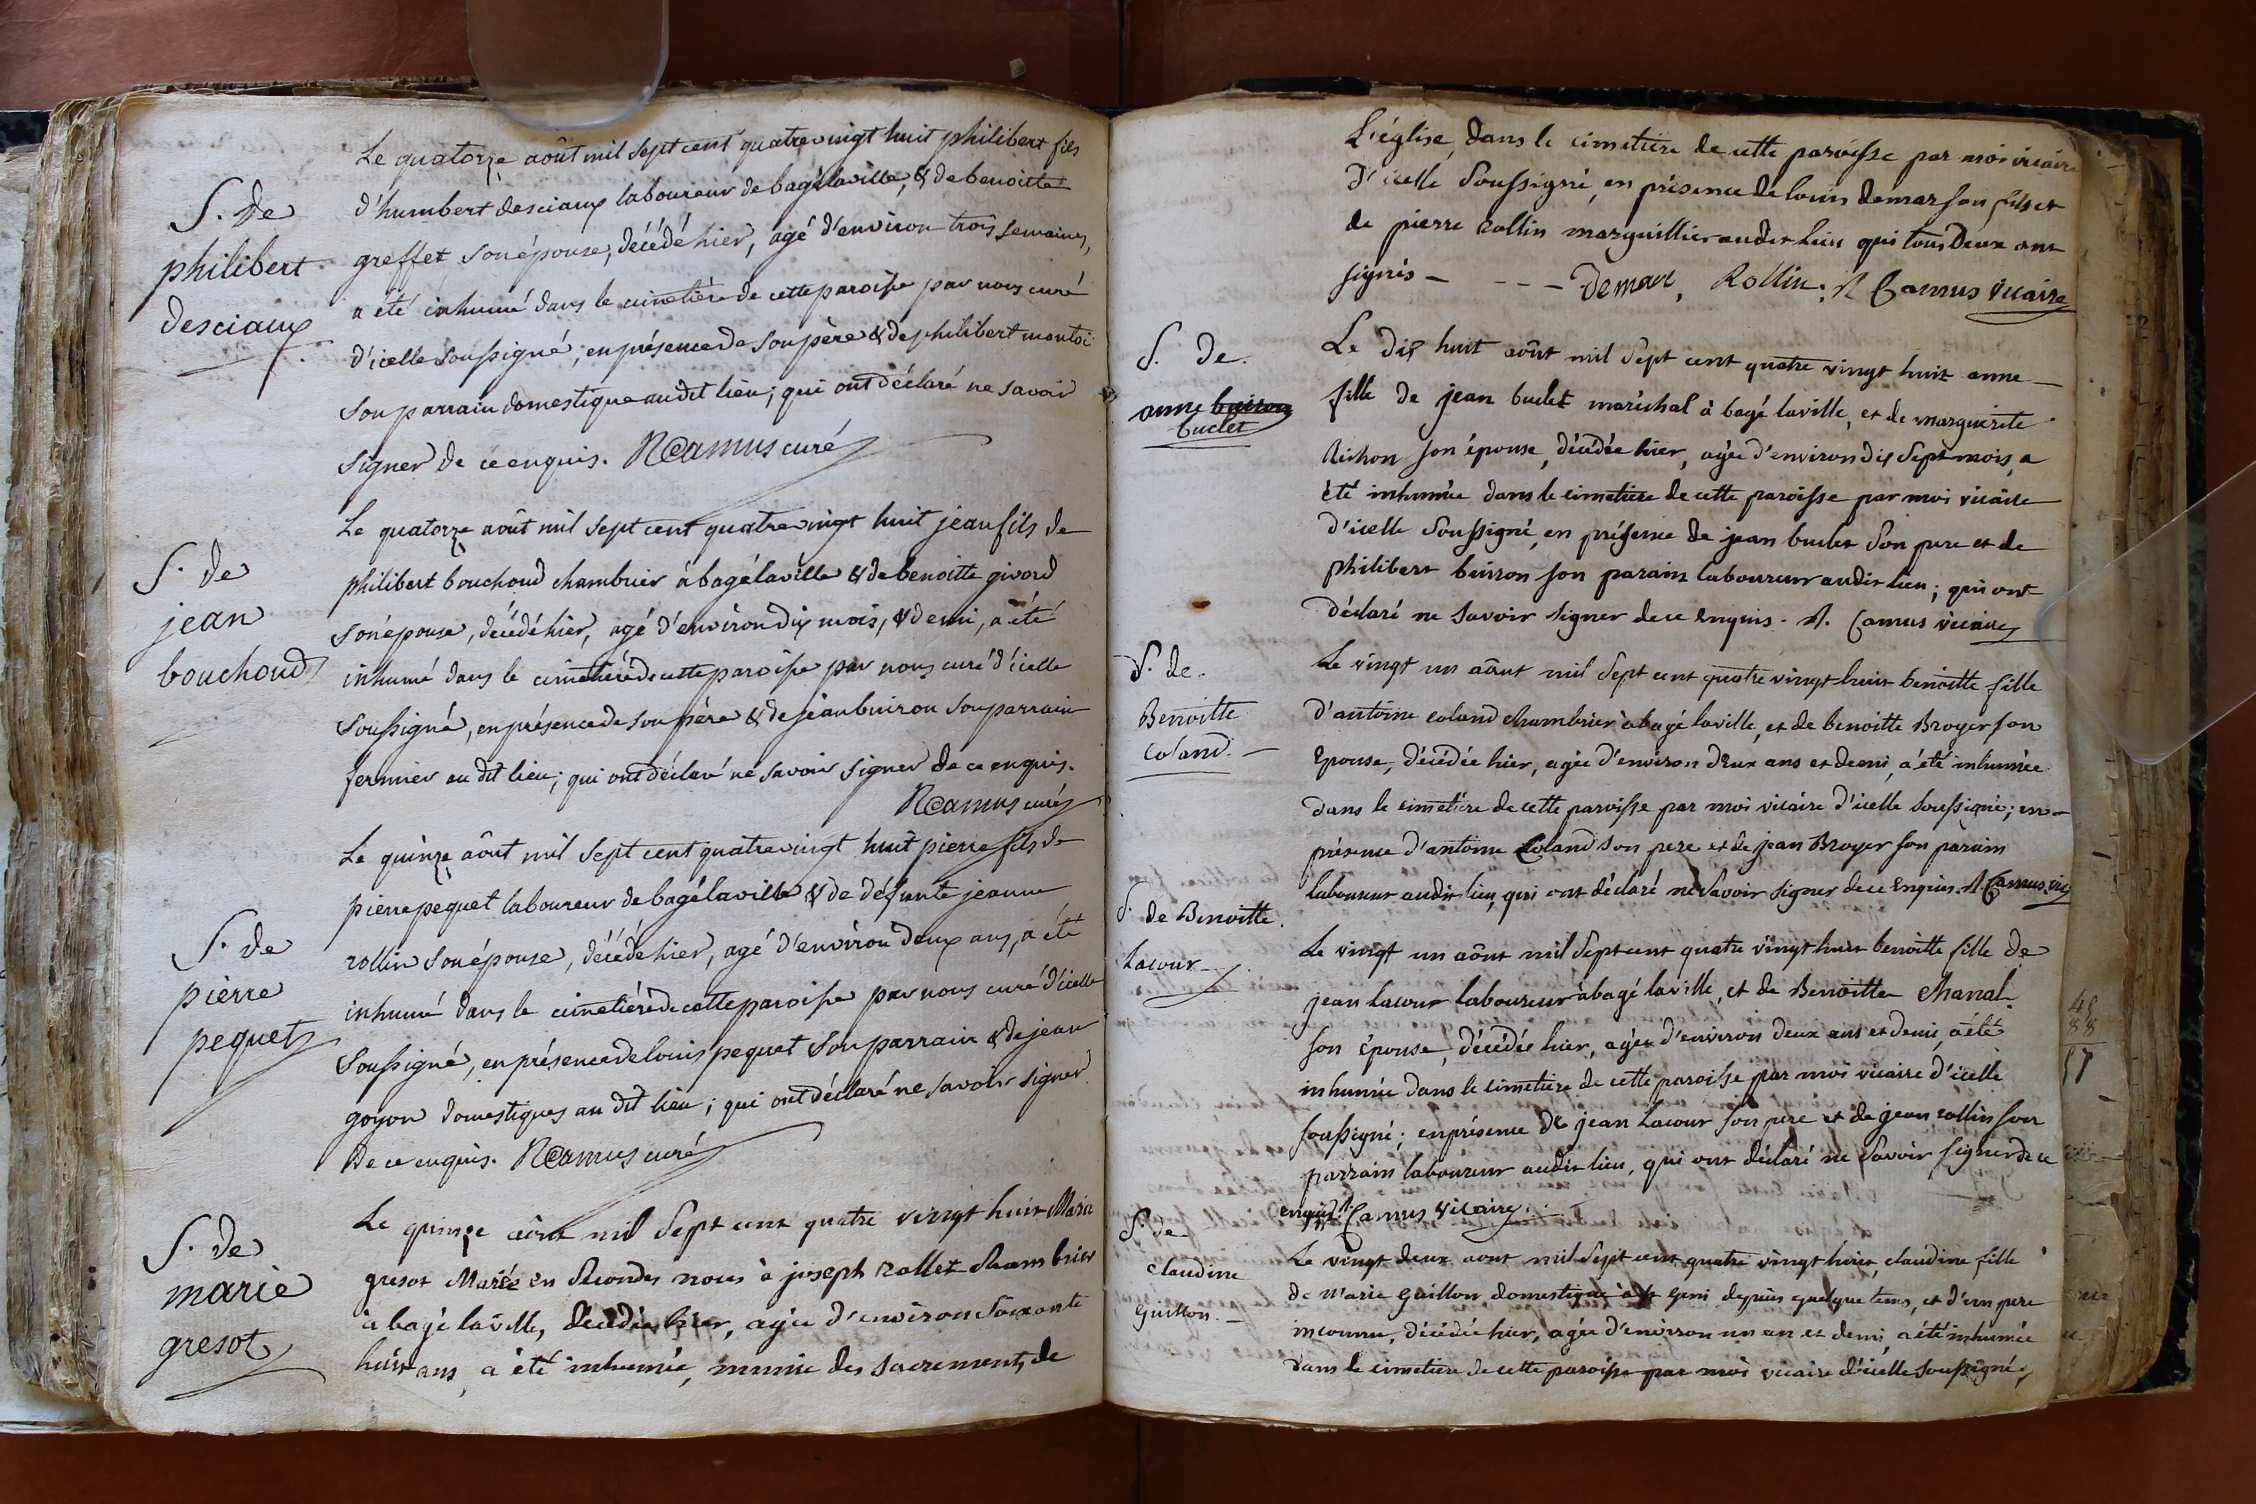 S. de
philibert
desciaux
Le quatorze août mil sept cent quatrevingt huit philibert fils
d'humbert desciaux laboureur de bagélaville, & de benoitte
greffet son épouse, décédé hier, agé d'environ trois semaines,
a été inhumé dans le cimetière de cette paroisse par nous curé
d'icelle soussigné, en présence de son père & de philibert montoi
son parrain domestique au dit lieu; qui ont déclaré ne savoir
signer de ce enquis. Camus curé
S. de
jean
bouchoud
Le quatorze août mil sept cent quatrevingt huit jean fils de
philibert bouchoud chambrier à bagélaville & de benoitte givord
son épouse, décédé hier, agé d'environ dix mois, & demi, a été
inhumé dans le cimetière de cette paroisse par nous curé d'icelle
soussigné, en présence de son père & de jean buiron son parrain
fermier au dit lieu; qui ont déclaré ne savoir signer de ce enquis.
Camus curé
S. de
pierre
pequet
Le quinze août mil sept cent quatrevingt huit pierre fils de
pierre pequet laboureur de bagélaville & de défunte jeanne
rollin son épouse, décédé hier, agé d'environ deux ans, a été
inhumé dans le cimetière de cette paroisse par nous curé d'icelle
soussigné, en présence de louis pequet son parrain & de jean
goyon domestiques au dit lieu; qui ont déclaré ne savoir signer
de ce enquis. Camus curé
S. de
marie
gresot
Le quinze août mil sept cent quatre vingt huit Marie
gresot Mariée en secondes noces à joseph rollet chambrier
à bagé laville, décédée hier, agée d'environ soixante
huit ans, a été inhumée, munie des sacrements de
L'église, dans le cimetière de cette paroisse par moi vicaire
d'icelle soussigné, en présence de louis demar son fils et
de pierre rollin marguillier audit lieu qui tous deux ont
signés - - - - Demar, Rollin; Camus vicaire
S. de
anne buiron
buclet
Le dix huit août mil sept cent quatre vingt huit anne
fille de jean buclet maréchal à bagé laville, et de marguerite
Richon son épouse, décédée hier, agée d'environ dix sept mois, a
été inhumée dans le cimetiere de cette paroisse par moi vicaire
d'icelle soussigné, en présence de jean buclet son pere et de
philibert buiron son parain laboureur audit lieu; qui ont
déclaré ne savoir signer de ce enquis. Camus vicaire
S. de
Benoitte
Coland. -
Le vingt un août mil sept cent quatre vingt huit benoitte fille
d'antoine coland chambrier à bagé laville, et de benoitte Broyer son
épouse, décédée hier, agée d'environ deux ans et demi, a été inhumée
dans le cimetière de cette paroisse par moi vicaire d'icelle soussigné; en
présence d'antoine Coland son pere et de jean Broyer son parain
laboureur audit lieu, qui ont déclaré ne savoir signer de ce enquis. Camus vic
S. de Benoitte
Lacour
Le vingt un août mil sept cent quatre vingt huit benoitte fille de
jean Lacour laboureur à bagé laville, et de Benoitte Chanal
son épouse, décédée hier, agée d'environ deux ans et demi, a été
inhumée dans le cimetiere de cette paroisse par moi vicaire d'icelle
soussigné; en présence de jean Lacour son pere et de jean rollin son
parrain laboureur audit lieu, qui ont déclaré ne savoir signer de ce
enquis. Camus Vicaire
S. de
Claudine
Guillon. -
Le vingt deux aout mil sept cent quatre vingt huit, claudine fille
de Marie Guillon domestique à geni depuis quelque tems, et d'un pere
inconnu, décédée hier, agée d'environ un an et demi, a été inhumée
dans le cimetiere de cette paroisse par moi vicaire d'icelle soussigné,